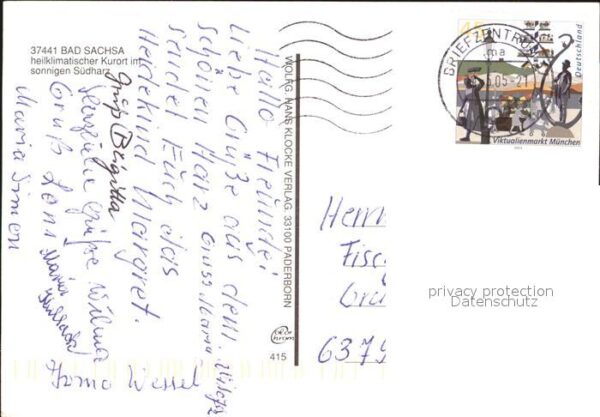 37441 BAD SACHSA
heilklimatischer Kurort im
sonnigen Südharz
Hallo Freunde!
Liebe Grüße aus dem
schönen Harz
sendet Euch das
Heidekind Margret.
Gruß Brigitta
Grüße Wilma
Gruß Leni
Maria Simon
Maria
Wessel
WOLFG. HANS KLOCKE VERLAG, 33100 PADERBORN
415
45
Deutschland
BRIEFZENTRUM
Viktualienmarkt München
Herrn
6379
privacy protection
Datenschutz